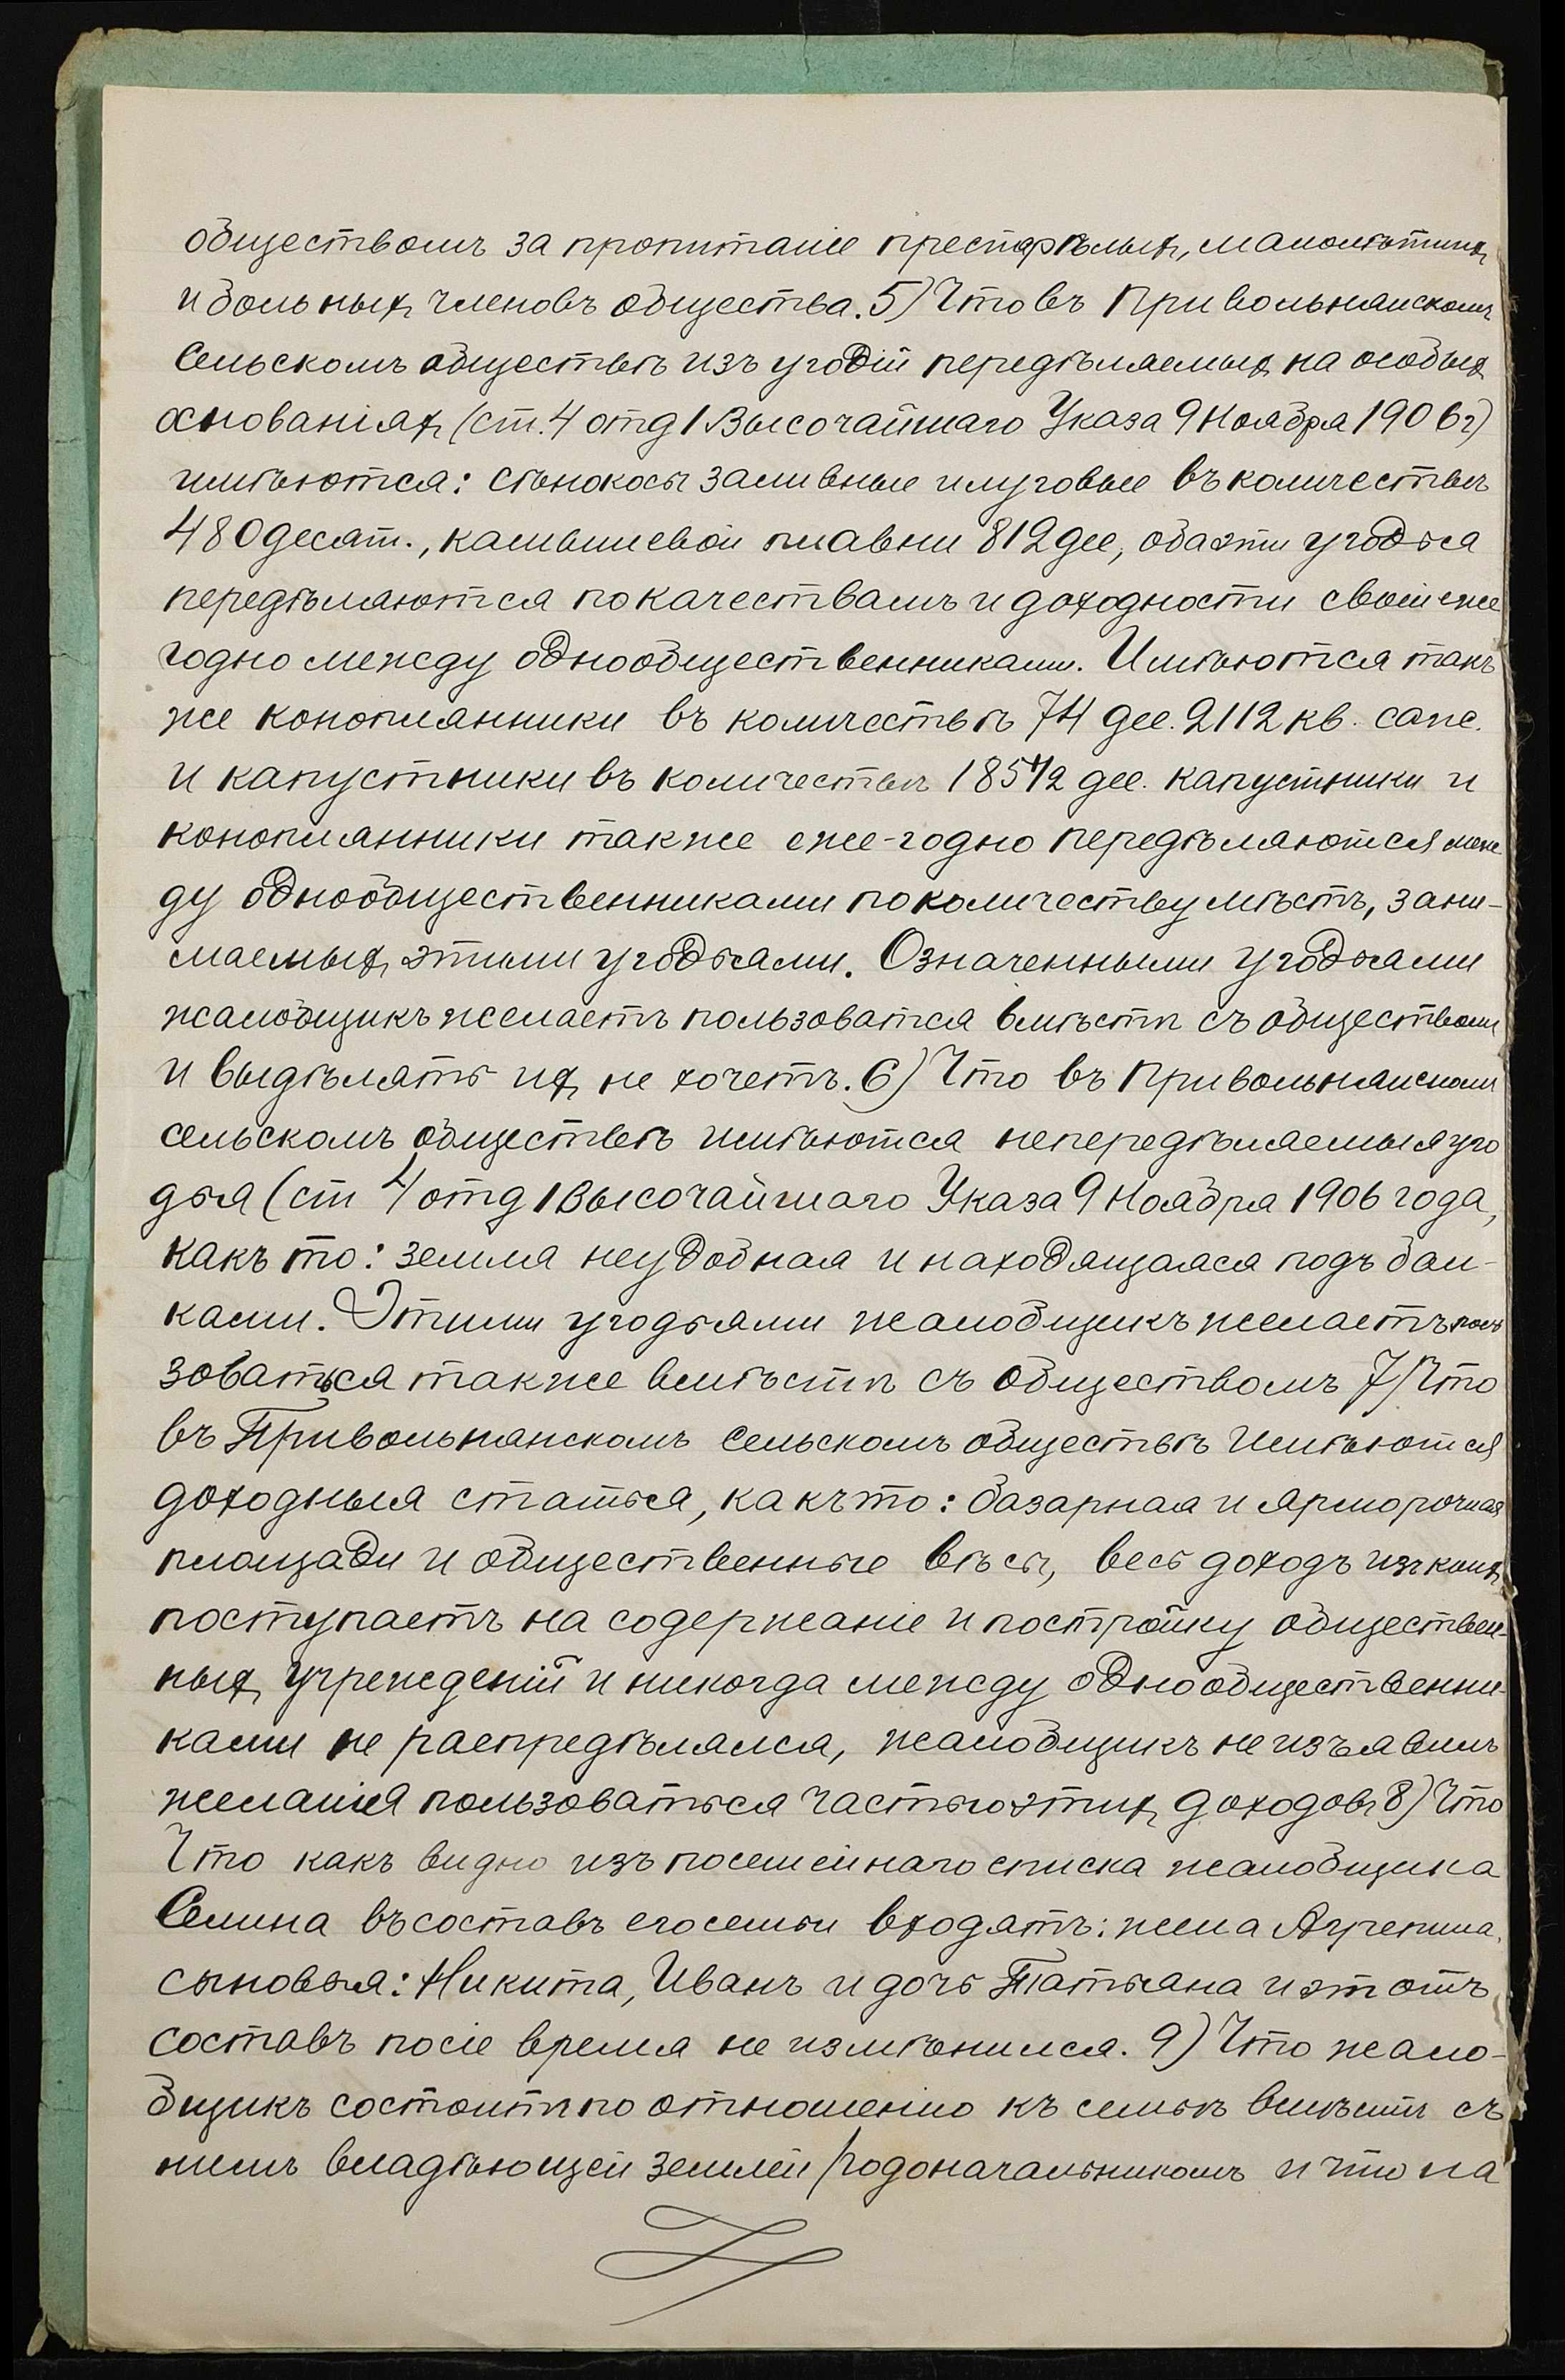 обществомъ за пропитаніе престарѣлыхъ, малолѣтнихъ
и больныхъ членовъ общества. 5) Что въ Привольнянскомъ
Сельскомъ обществѣ изъ угодій передѣляемыхъ на особыхъ
основаніяхъ (ст. 4 отд 1 Высочайшаго Указа 9 Ноября 1906 г)
имѣются: сѣнокосы заливные и луговые въ количествѣ
480 десят., камышевой плавни 812 дес, оба эти угодья
передѣляются по качествамъ и доходности своей еже
годно между однообщественниками. Имѣются такъ
же конопляники въ количествѣ 74 дес. 2112 кв. саж.
и капустники въ количествѣ 185 1/2 дес. капустники и
конопляники также еже-годно передѣляются меж
ду однообщественниками по количеству мѣстъ, зани-
маемыхъ этими угодьями. Означенными угодьями
жалобщикъ желаетъ пользоватся вмѣстѣ съ обществомъ
и выдѣлять ихъ не хочетъ. 6) Что въ Привольнянскомъ
сельскомъ обществѣ имѣются непередѣляемыя уго
дья (ст 4 отд 1 Высочайшаго Указа 9 Ноября 1906 года,
какъ то: земля неудобная и находящаяся подъ бал-
ками. Этими угодьями жалобщикъ желаетъ поль
зоваться также вмѣстѣ съ обществомъ 7) Что
въ Привольнянскомъ сельскомъ обществѣ имѣются
доходныя статья, какъ то: базарная и ярморочная
площади и общественные вѣсы, весь доходъ изъ коихъ
поступаетъ на содержаніе и постройку обществен-
ныхъ учрежденій и никогда между однообщественни-
ками не распредѣлялся, жалобщикъ не изъявилъ
желанія пользоваться частью этихъ доходовъ 8) Что
Что какъ видно изъ посемейнаго списка жалобщика
Семина въ составъ его семьи входятъ: жена Агрепина,
сыновья: Никита, Иванъ и дочь Татьяна и этотъ
составъ посіе время не измѣнился. 9) Что жало-
бщикъ состоитъ по отношенію къ семьѣ вмѣстѣ съ
нимъ владѣющей землей родоначальникомъ и что на